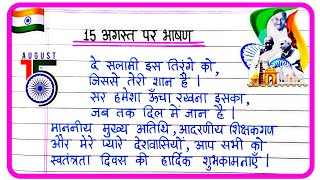 15 अगस्त पर भाषण
AUGUST
15
दे सलामी इस तिरंगे को,
जिससे तेरी शान है ।
सर हमेशा ऊँचा रखना इसका,
जब तक दिल में जान है ।
माननीय मुख्य अतिथि, आदरणीय शिक्षकगण
और मेरे प्यारे देशवासियों, आप सभी को
स्वतंत्रता दिवस की हार्दिक शुभकामनाएँ ।